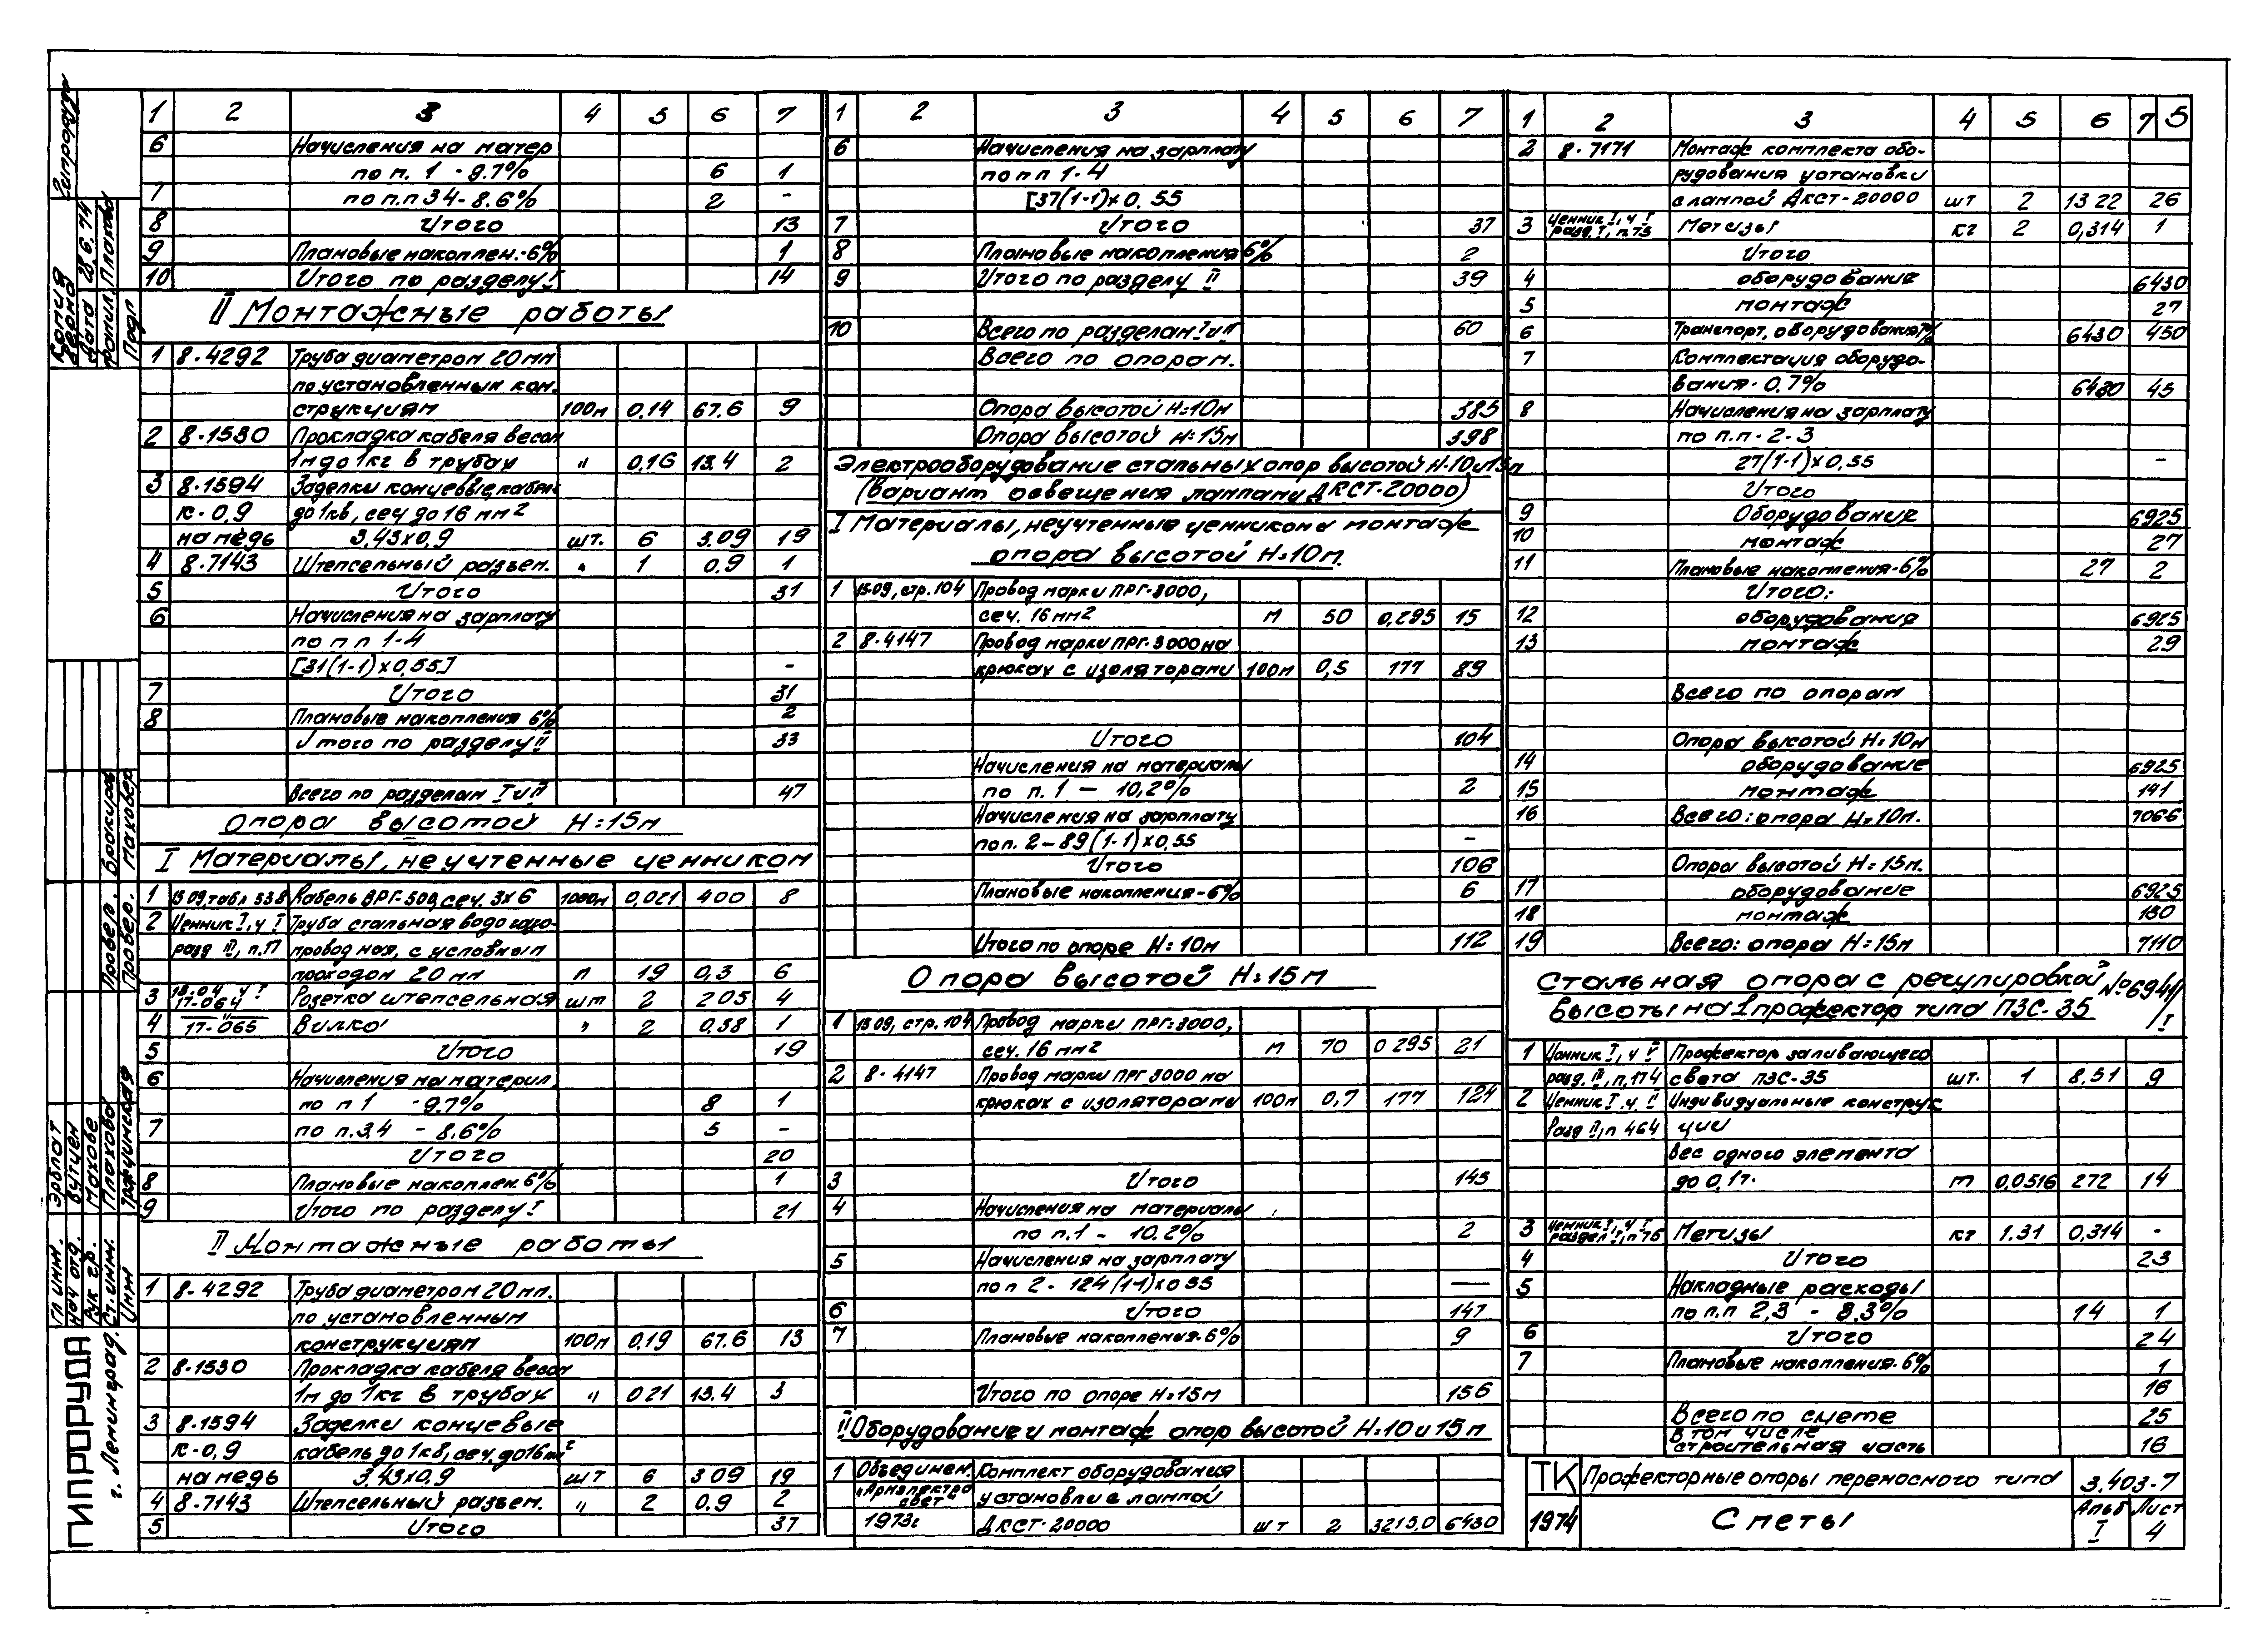 1 2 3 4 5 6 7
6 Начисления на матер
по п. 1 - 9.7% 6 1
7 по п.п 3 4 - 8.6% 2 -
8 Итого 13
9 Плановые накоплен.-6% 1
10 Итого по разделу I 14
II Монтажные работы
1 8-4292 Труба диаметром 20мм
по установленным кон.
струкциям 100м 0,14 67.6 9
2 8-1530 Прокладка кабеля весом
1м до 1кг в трубах " 0,16 13.4 2
3 8-1594 Заделки концевые, кабель
к-0,9 до 1кв, сеч до 16 мм2
на медь 3,43х0,9 шт. 6 3.09 19
4 8-7143 Штепсельный разъем. " 1 0.9 1
5 Итого 31
6 Начисления на зарплату
по п п 1-4
[31(1-1)х0,55] -
7 Итого 31
8 Плановые накопления 6% 2
Итого по разделу II 33
Всего по разделам I и II 47
Опора высотой Н=15м
I Материалы, не учтенные ценником
1 15 09, табл 538 Кабель ВРГ-500, сеч. 3х6 1000м 0,021 400 8
2 Ценник I, ч I Труба стальная водогазо-
разд III, п.17 проводная, с условным
проходом 20 мм м 19 0,3 6
3 18-04 ч I 17-064 Розетка штепсельная шт 2 2 05 4
4 17-065 Вилка " 2 0,38 1
5 Итого 19
6 Начисления на материл.
по п 1 - 9.7% 8 1
7 по п.3,4 - 8.6% 5 -
Итого 20
8 Плановые накоплен. 6% 1
9 Итого по разделу I 21
II Монтажные работы
1 8-4292 Труба диаметром 20мм.
по установленным
конструкциям 100м 0,19 67.6 13
2 8-1530 Прокладка кабеля весом
1м до 1кг в трубах " 0 21 13.4 3
3 8-1594 Заделки концевые
к-0,9 кабель до 1кв, сеч. до 16мм2
на медь 3,43х0,9 шт 6 3 09 19
4 8-7143 Штепсельный разъем. " 2 0.9 2
5 Итого 37
1 2 3 4 5 6 7
6 Начисления на зарплату
по п п 1-4
[37(1-1)х0.55
7 Итого 37
8 Плановые накопления 6% 2
9 Итого по разделу II 39
10 Всего по разделам I и II 60
Всего по опорам.
Опора высотой Н=10м 385
Опора высотой Н=15м 398
Электрооборудование стальных опор высотой Н-10 и 15м
(Вариант освещения лампами ДКСТ-20000)
I Материалы, неучтенные ценником на монтаж
опора высотой Н=10м.
1 15-09, стр.104 Провод марки ПРГ-3000,
сеч. 16мм2 м 50 0,295 15
2 8-4147 Провод марки ПРГ-3000 на
крюках с изоляторами 100м 0,5 177 89
Итого 104
Начисления на материалы
по п. 1 — 10,2% 2
Начисления на зарплату
по п. 2 - 89(1-1)х0,55 -
Итого 106
Плановые накопления-6% 6
Итого по опоре Н=10м 112
Опора высотой Н=15м
1 15 09, стр.104 Провод марки ПРГ-3000,
сеч. 16 мм2 м 70 0 295 21
2 8-4147 Провод марки ПРГ 3000 на
крюках с изоляторами 100м 0,7 177 124
3 Итого 145
4 Начисления на материалы
по п.1 - 10.2% 2
5 Начисления на зарплату
по п 2 - 124(1-1)х0 55 —
6 Итого 147
7 Плановые накопления-6% 9
Итого по опоре Н=15м 156
II Оборудование и монтаж опор высотой Н=10 и 15м
1 Объединен. Комплект оборудования
"Армэлектросвет" установки с лампой
1973г ДКСТ-20000 шт 2 3215,0 6430
1 2 3 4 5 6 7 5
2 8-7171 Монтаж комплекта обо-
рудования установки
с лампой ДКСТ-20000 шт 2 13 22 26
3 Ценник I, ч I разд. I, п.75 Метизы кг 2 0,314 1
Итого
4 оборудование 6430
5 монтаж 27
6 Транспорт, оборудования 7% 6430 450
7 Комплектация оборудо-
вания-0.7% 6430 45
8 Начисления на зарплату
по п.п-2-3
27(1-1)х0,55 -
Итого
9 Оборудование 6925
10 монтаж 27
11 Плановые накопления-6% 27 2
Итого:
12 оборудования 6925
13 монтаж 29
Всего по опорам
Опора высотой Н=10м
14 оборудование 6925
15 монтаж 141
16 Всего: опора Н=10м. 7066
Опора высотой Н=15м.
17 оборудование 6925
18 монтаж
19 Всего: опора Н=15м 7110
Стальная опора с регулировкой
высоты на 1 прожектор типа ПЗС-35
№6941/I
1 Ценник I, ч V Прожектор заливающего
разд. III, п.174 света ПЗС-35 шт. 1 8,51 9
2 Ценник I. ч. II Индивидуальные конструк
Разд II, п 464 ции
вес одного элемента
до 0,1т. т 0,0516 272 14
3 Ценник I, ч I раздел I, п 75 Метизы кг 1,31 0,314 -
4 Итого 23
5 Накладные расходы
по п.п 2,3 - 8.3% 14 1
6 Итого 24
7 Плановые накопления-6% 1
16
Всего по смете 25
в том числе
строительная часть 16
ТК Прожекторные опоры переносного типа 3.403-7
1974 Сметы Альб I Лист 4
Гипроруда
Копия верна
Дата 28.6.74
Подп
ГИПРОРУДА
г. Ленинград.
Гл инж. Эрблат
Нач отд. Вутцен
Рук гр. Махове
Ст. инж. Плахова
Инж
Провер. Бройкиров
Провер. Маховер